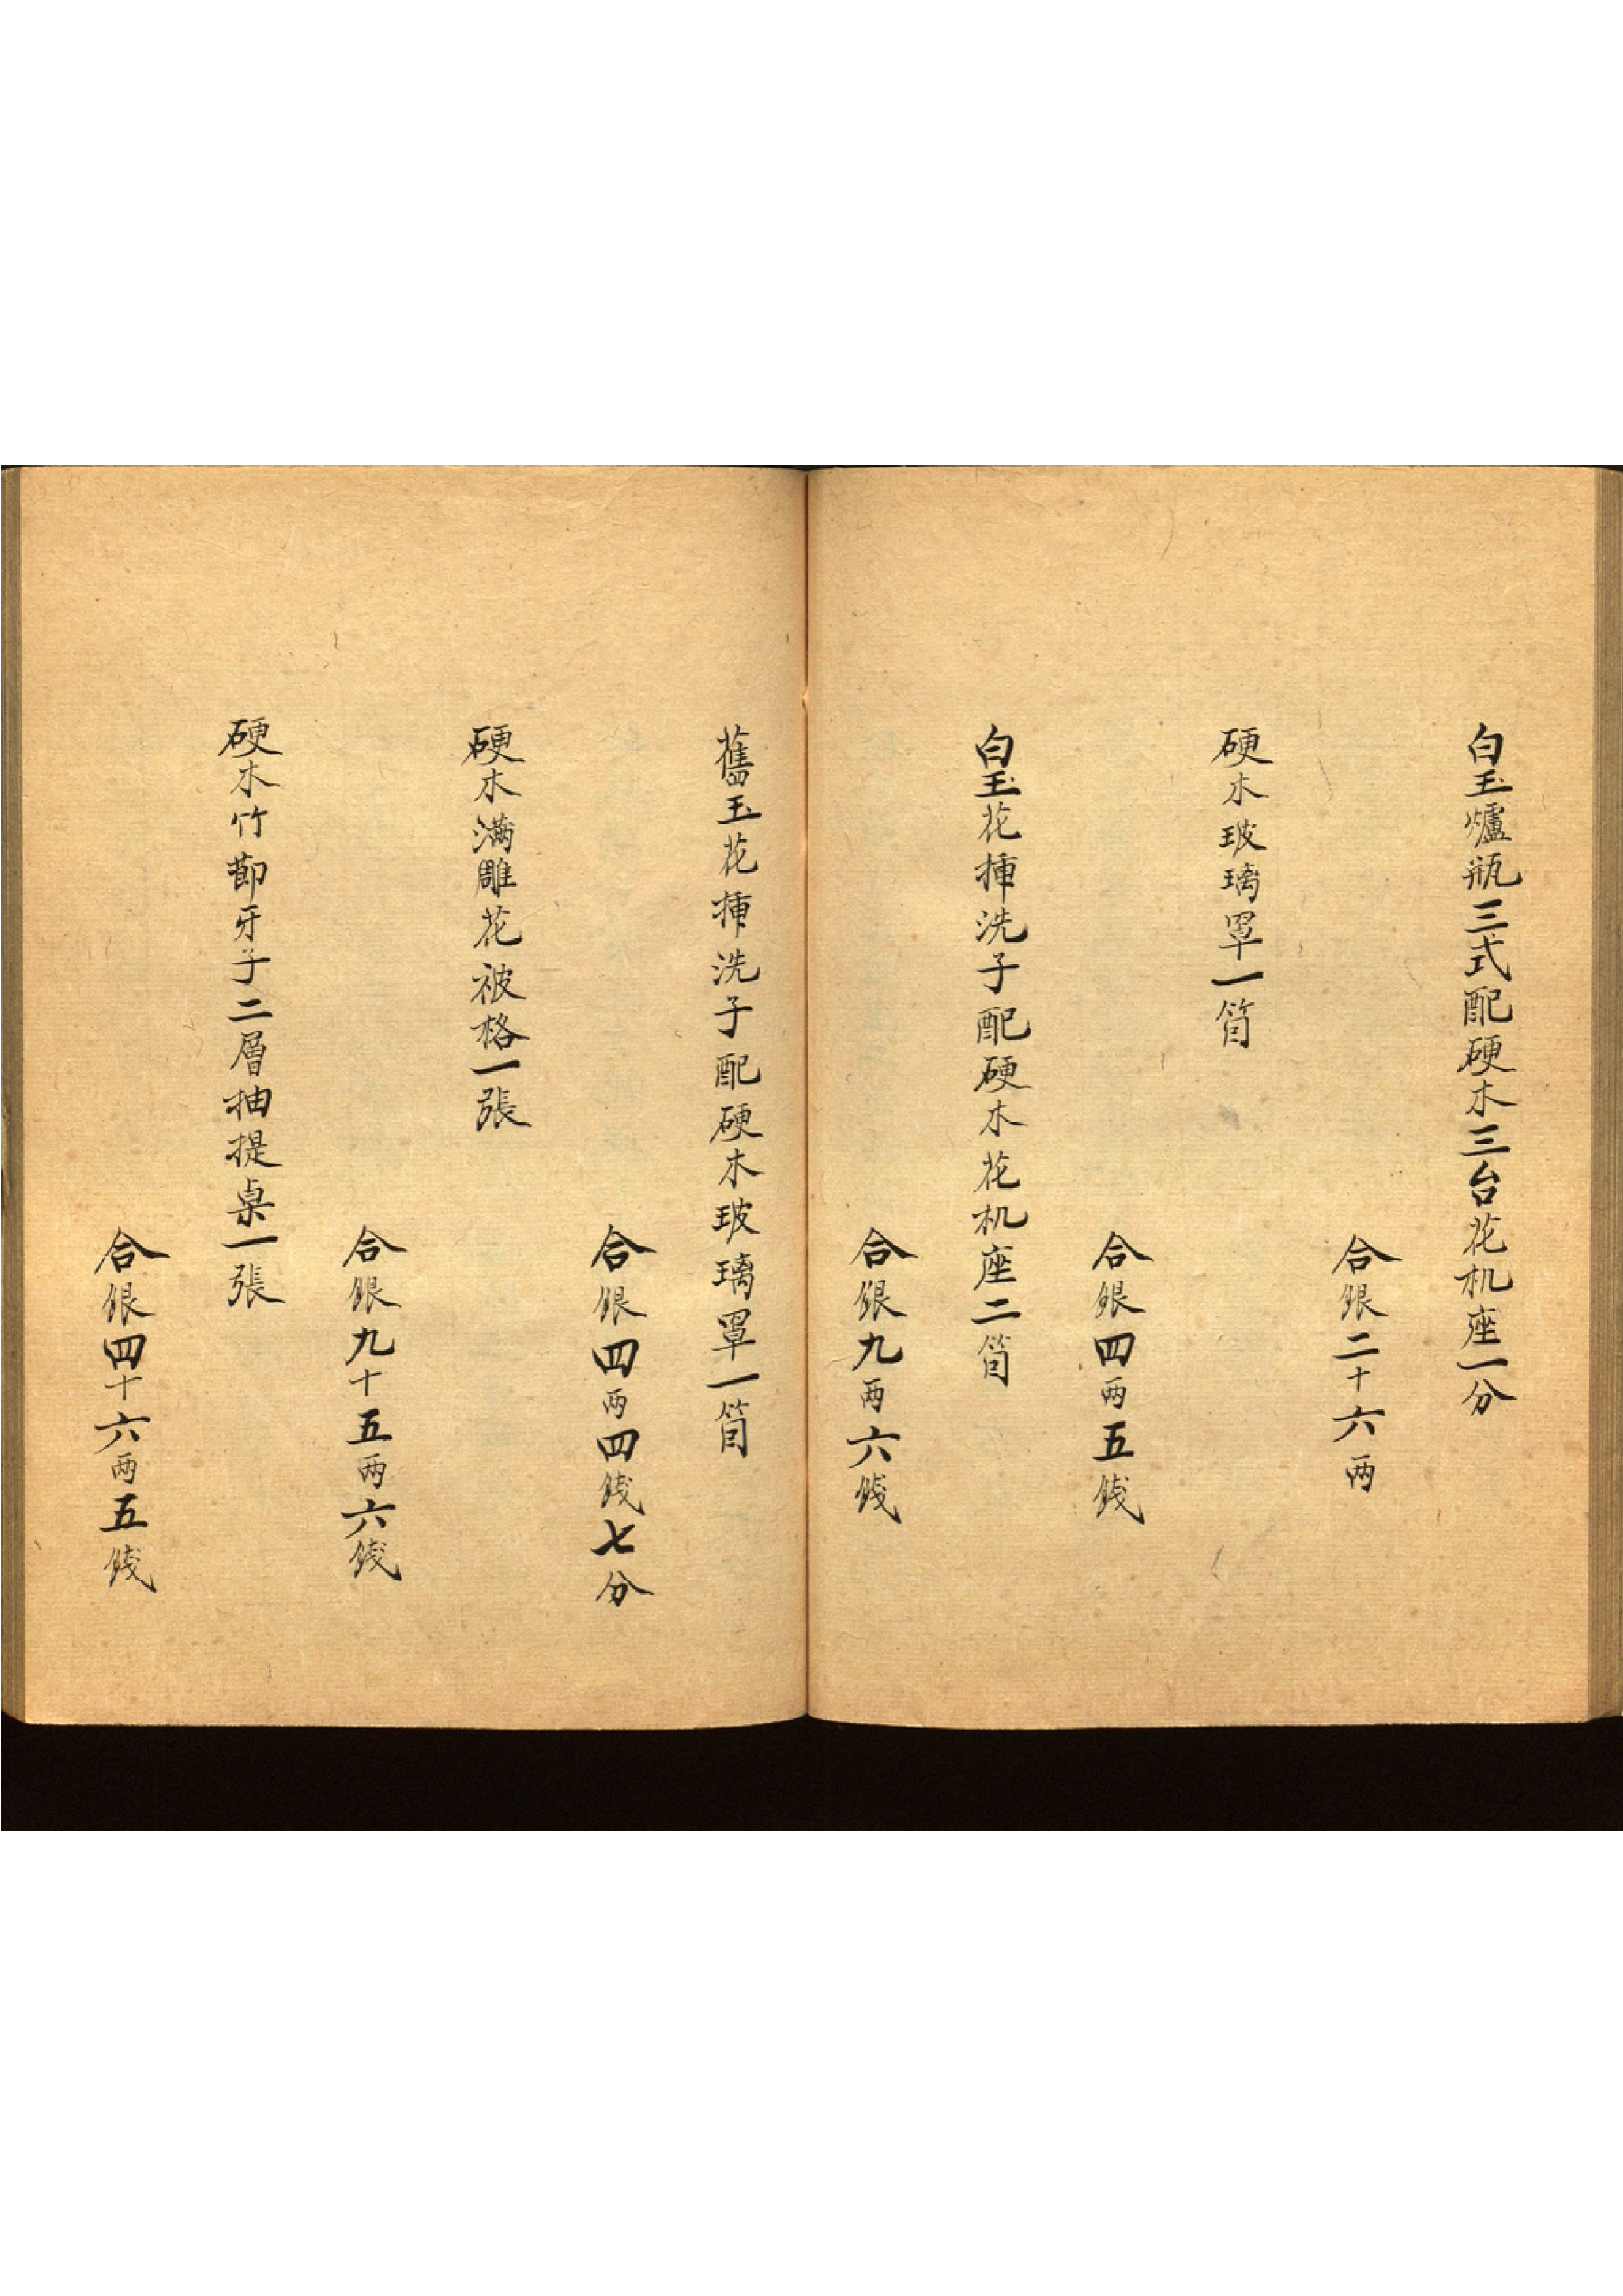 白玉爐瓶三式配硬木三台花机座一分
合銀二十六两
硬木玻璃罩一箇
合銀四两五錢
白玉花揷洗子配硬木花机座二箇
合銀九两六錢
舊玉花揷洗子配硬木玻璃罩一箇
合銀四两四錢七分
硬木满雕花被格一張
合銀九十五两六錢
硬木竹節牙子二層抽提桌一張
合銀四十六两五錢